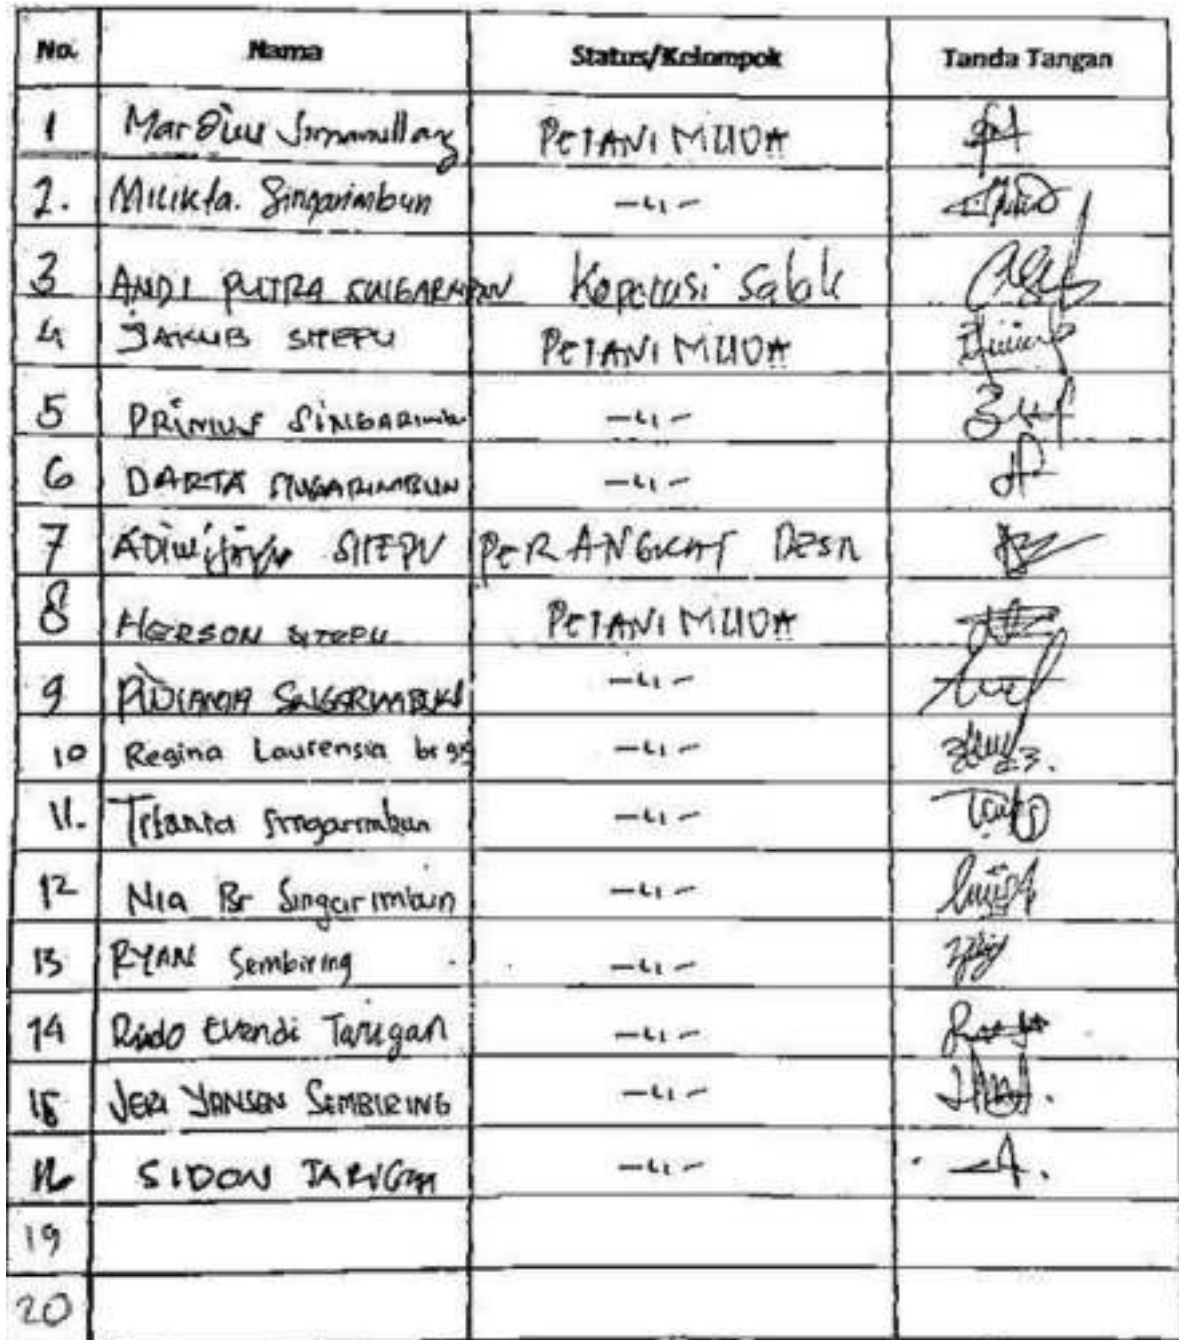 No. Nama Status/Kelompok Tanda Tangan
1 Mardius PETANI MUDA
2. Milikta. Singarimbun -4-
3 ANDI PUTRA SINGARIMBUN Koperasi Salak
4 JAKUB SITEPU PETANI MUDA
5 PRIMUS SINGARIMBUN -4-
6 DARTA SINGARIMBUN -4-
7 ADIWIJAYA SITEPU PERANGKAT DESA
8 HERSON SITEPU PETANI MUDA
9 SINGARIMBUN -4-
10 Regina Laurensia br -4-
11. Singarimbun -4-
12 Nia Br Singarimbun -4-
13 RYAN Sembiring -4-
14 Rido Evendi Tarigan -4-
15 JERI YANSEN SEMBIRING -4-
16 SIDON TARIGAN -4-
19
20